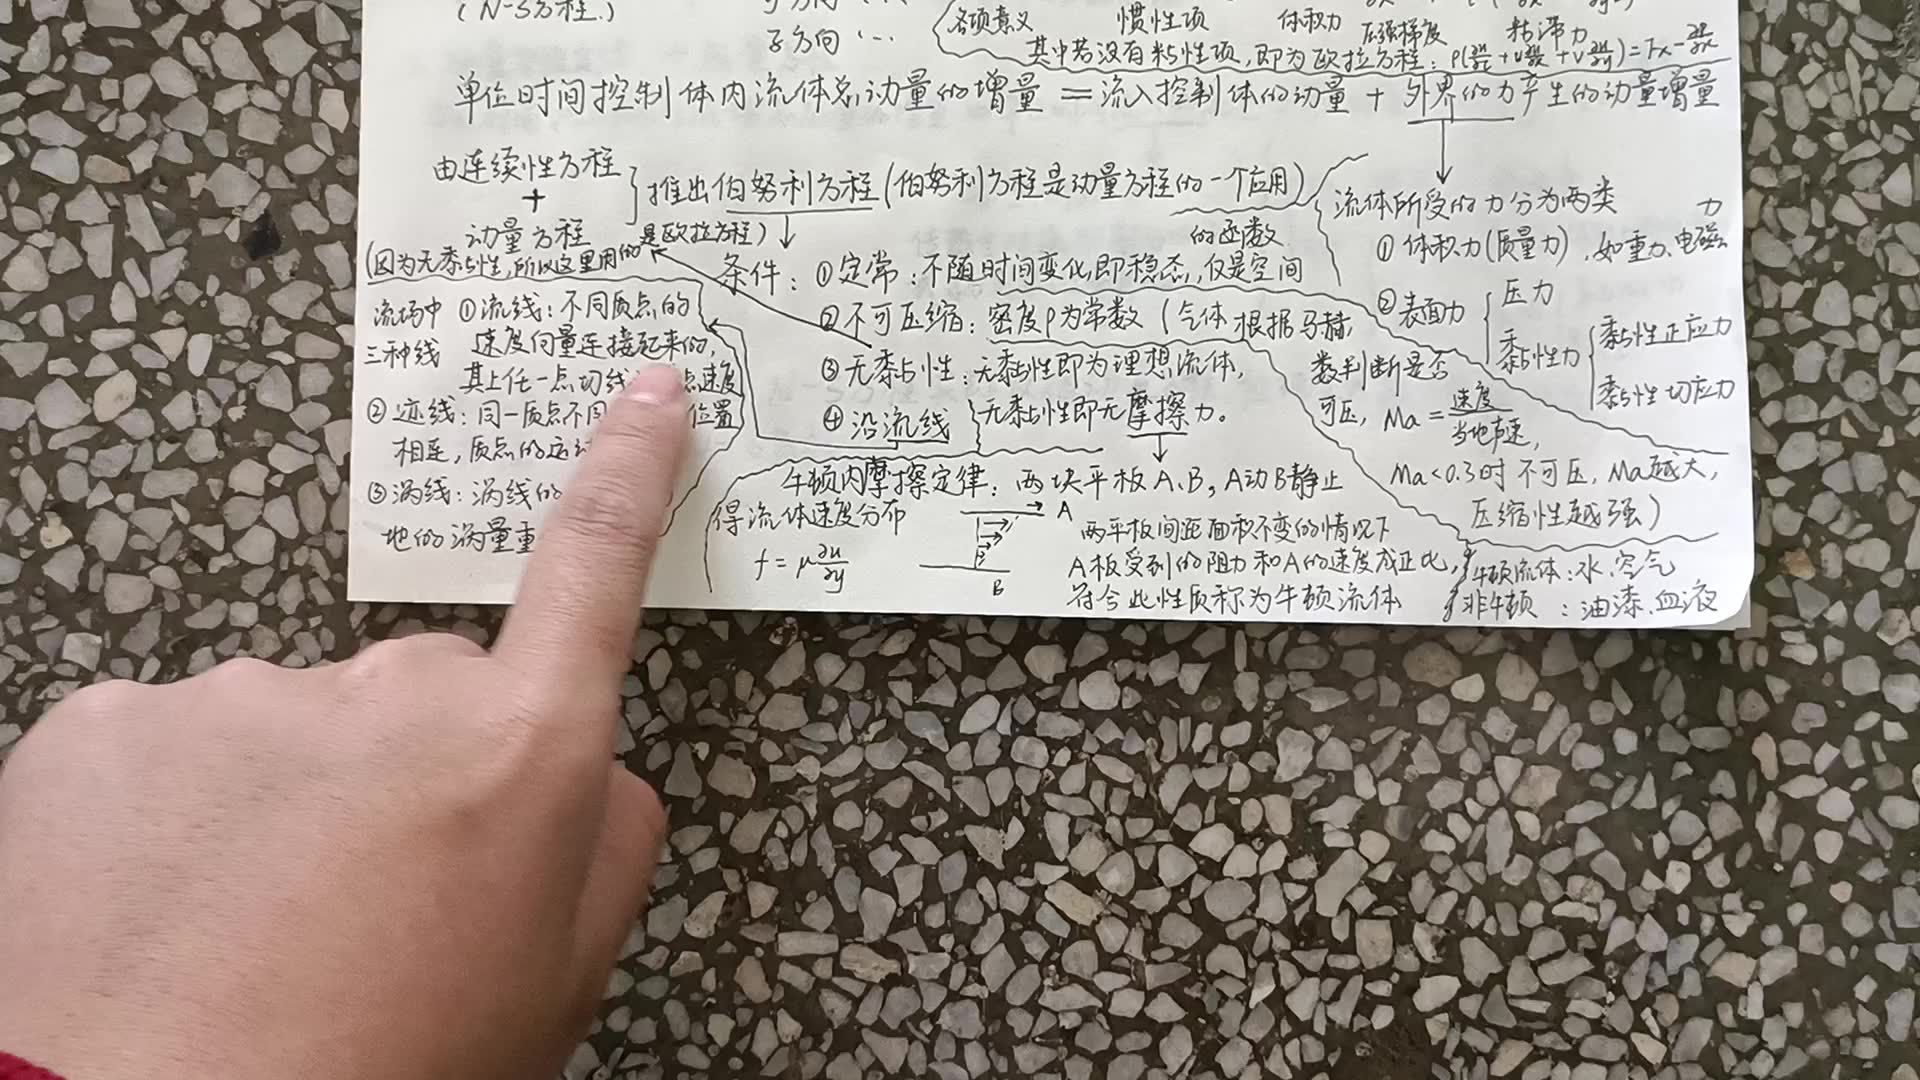 (N-S方程.)
z方向 …
各项意义 惯性项 体积力 压强梯度 粘滞力
其中若没有粘性项,即为欧拉方程:
单位时间控制体内流体总动量的增量 = 流入控制体的动量 + 外界的力产生的动量增量
由连续性方程
+
动量方程
推出伯努利方程(伯努利方程是动量方程的一个应用)
(因为无黏性,所以这里用的是欧拉方程)
条件: ①定常:不随时间变化,即稳态,仅是空间
的函数
②不可压缩: 密度ρ为常数 (气体根据马赫
数判断是否
可压, Ma = 速度/当地声速,
Ma<0.3时不可压, Ma越大,
压缩性越强)
③无黏性: 无黏性即为理想流体,
无黏性即无摩擦力。
④沿流线
流体所受的力分为两类
①体积力(质量力), 如重力、电磁力
②表面力
压力
黏性力
黏性正应力
黏性切应力
流场中
三种线
①流线: 不同质点的
速度向量连接起来的,
其上任一点切线 点速度
②迹线: 同一质点不同 位置
相连, 质点的运
③涡线: 涡线的
地的涡量重
牛顿内摩擦定律: 两块平板A、B, A动B静止
得流体速度分布
f = μ ∂u/∂y
A
B
两平板间距面积不变的情况下
A板受到的阻力和A的速度成正比,
符合此性质称为牛顿流体
牛顿流体: 水、空气
非牛顿 : 油漆、血液